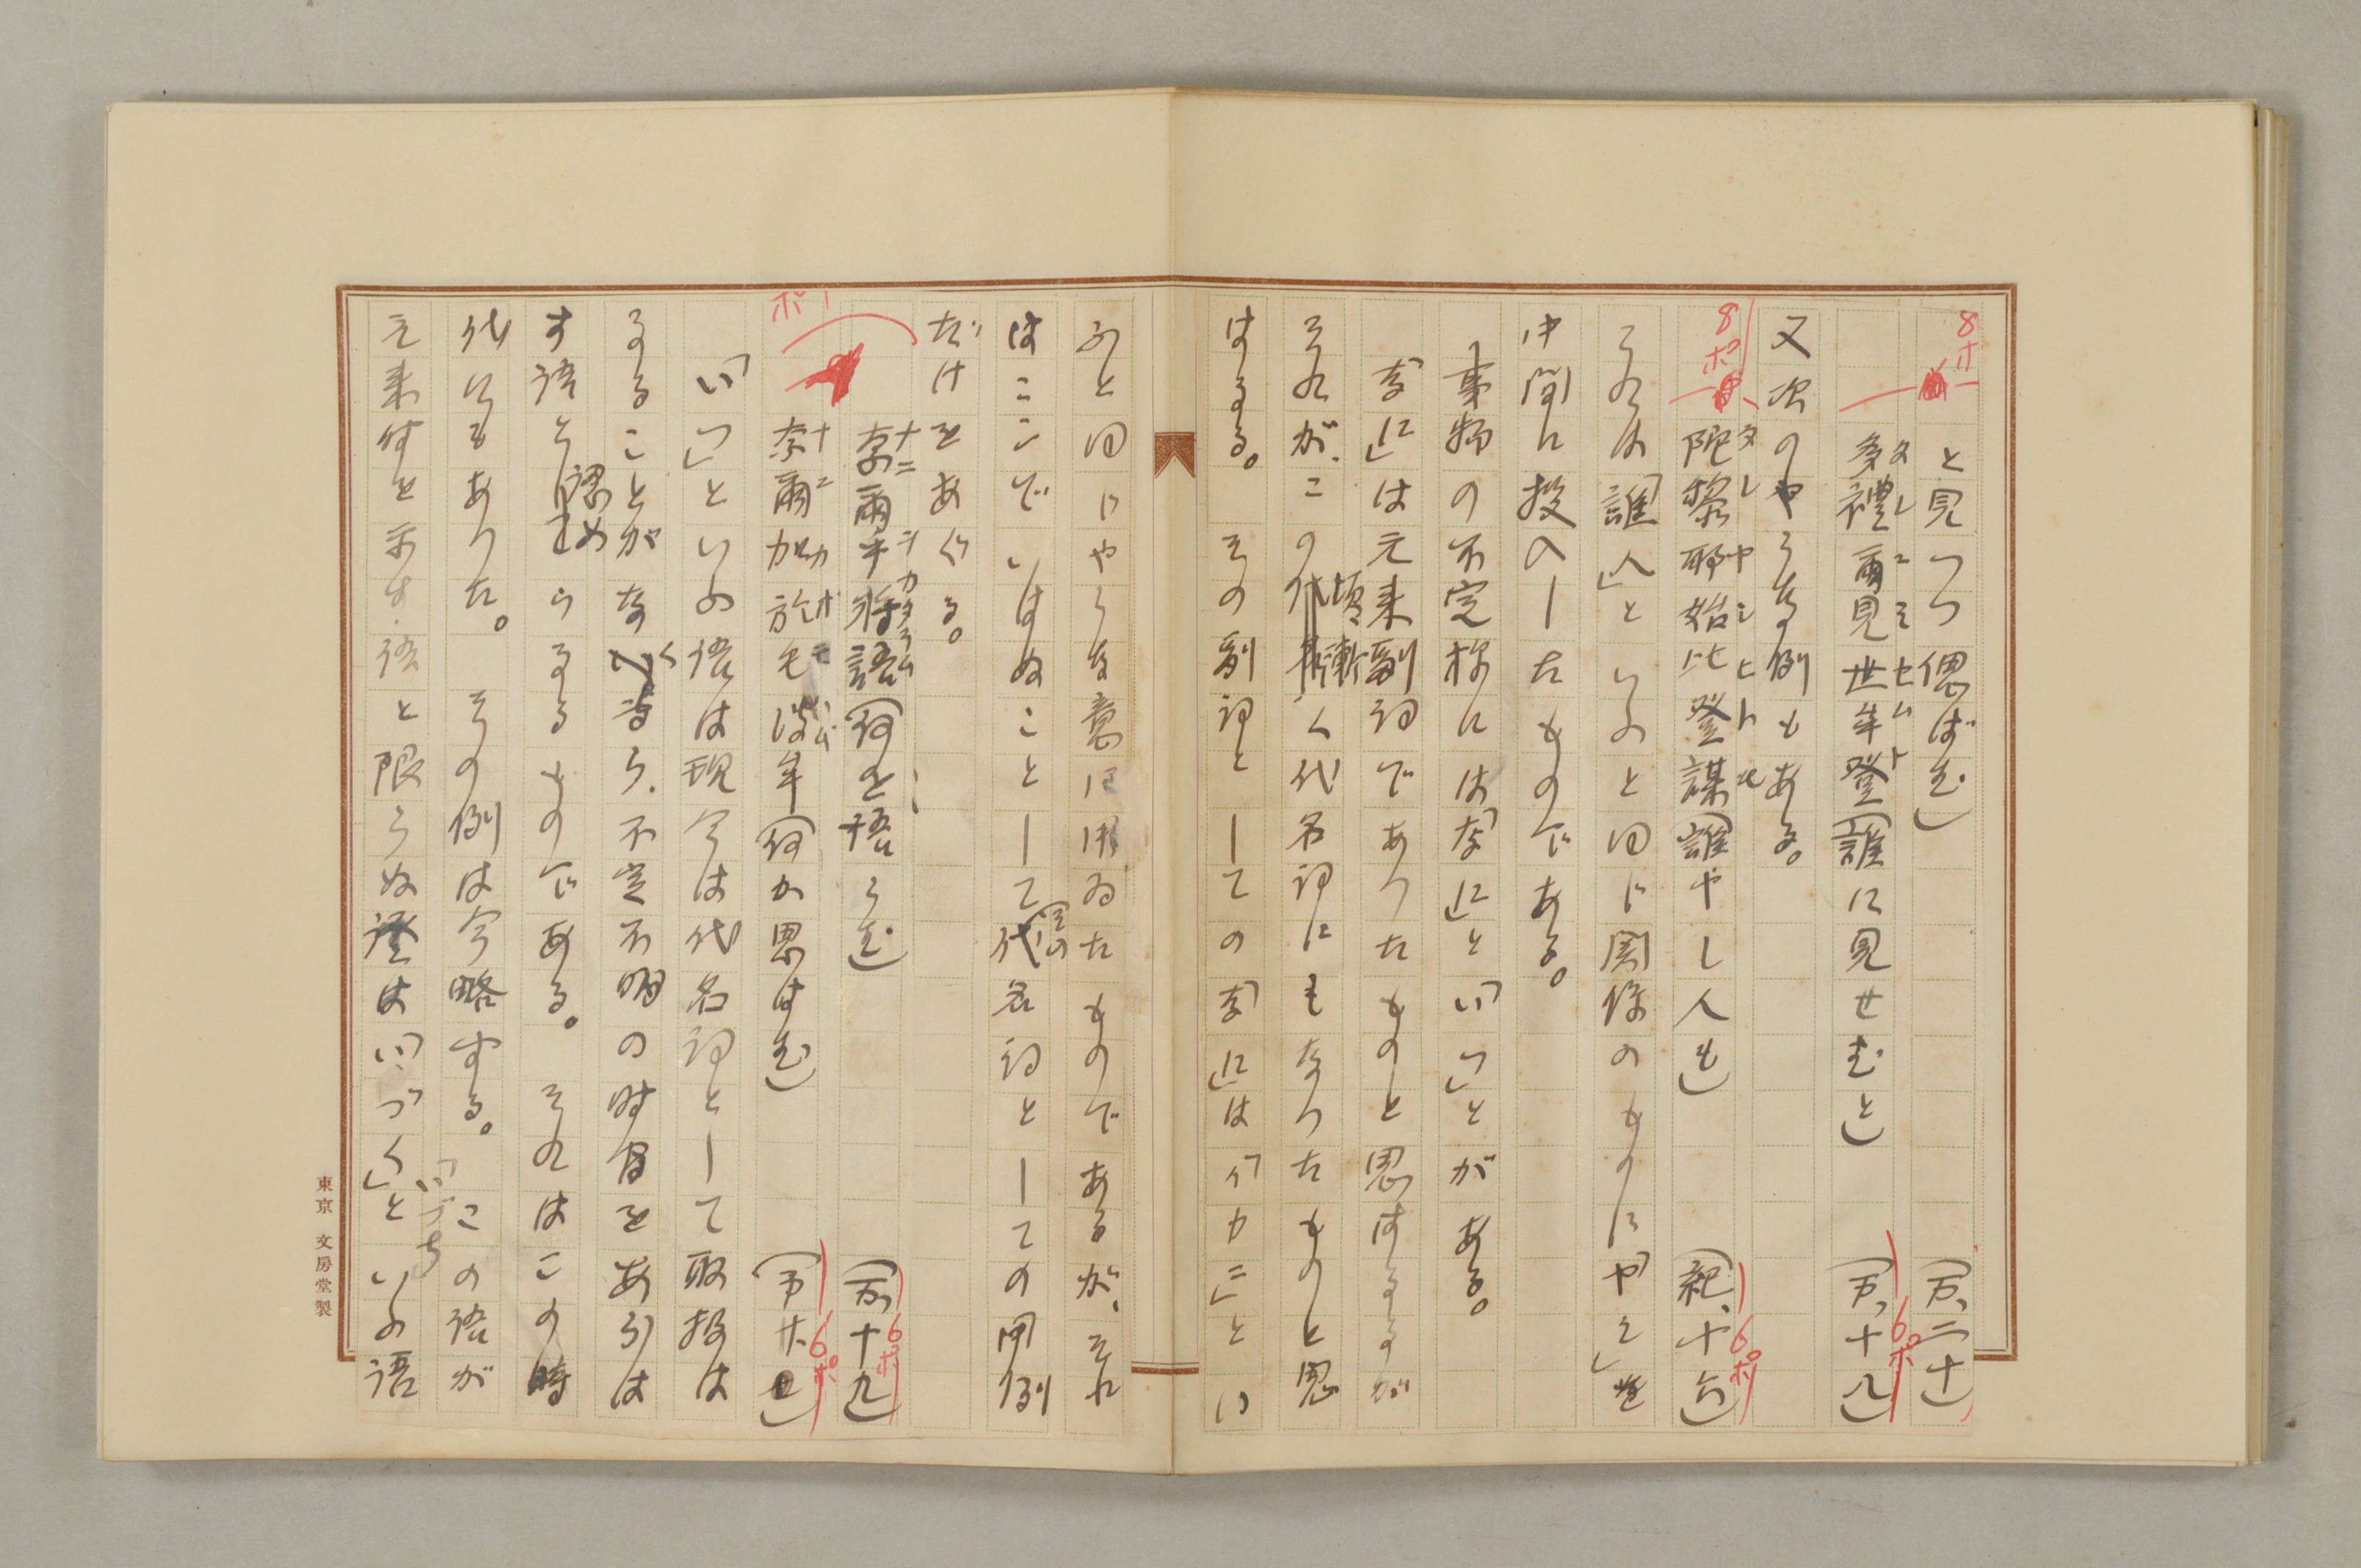 8ポ
と見つつ偲ばむ」(万、二十)
多禮爾見世牟登(誰に見せむと)(万、十八)
タレニミセムト
6ポ
又次のやうな例もある。
8ポ
陀黎耶始比登謀(誰やし人も)(紀、十六)
タレヤシヒトモ
6ポ
これは「誰人」といふと同じ関係のものに「やし」を
中間に投入したものである。
事物の不定称には「なに」と「いつ」とがある。
「なに」は元来副詞であつたものと思はるるが
それが、この頃漸く代名詞にもなつたものと思
はるる。その副詞としての「なに」は「イカニ」とい
ふと同じやうな意に用ゐたものであるが、それ
はここでいはぬこととして代名詞としての用例
だけをあぐる。
奈爾乎将語(何を語らむ)(万、十九)
ナニヲカタラム
6ポ
ポ
奈爾加於毛波牟(何か思はむ)(万、廿七)
ナニカオモハム
6ポ
「いつ」といふ語は現今は代名詞として取扱は
るることがなく、不定不明の時日をあらは
す語と認めらるるものである。それはこの時
代にもあつた。その例は今略する。この語が
元来時を示す語と限らぬ證は「いつ」「いづち」「いづく」といふ語
東京 文房堂製